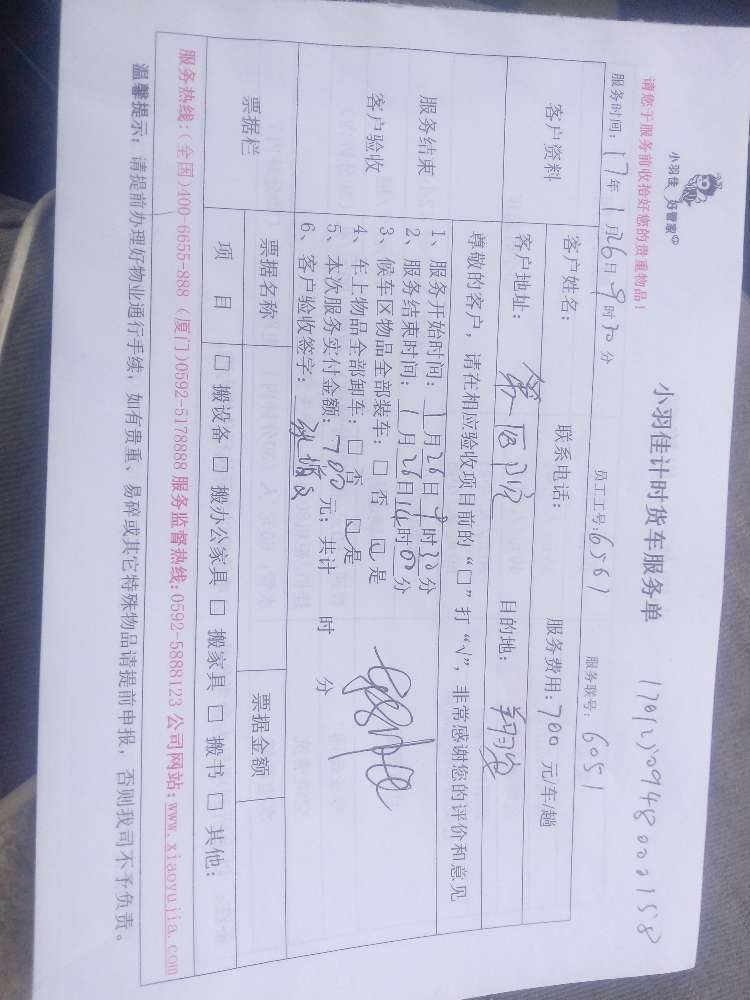 小羽佳 好管家
小羽佳计时货车服务单
请您于服务前收拾好您的贵重物品！
服务时间：17年1月26日9时30分 员工工号：6567 服务联号：6051
客户资料
客户姓名： 联系电话： 服务费用：700 元/车/趟
客户地址：第一医院 目的地：
尊敬的客户，请在相应验收项目前的“□”打“√”，非常感谢您的评价和意见
服务结束
客户验收
1、服务开始时间：1月26日9时30分
2、服务结束时间：1月26日14时00分
3、候车区物品全部装车：□ 否 ☑ 是
4、车上物品全部卸车：□ 否 ☑ 是
5、本次服务实付金额：700元；共计 时 分
6、客户验收签字：
票据栏
票据名称 票据金额
项 目 □ 搬设备 □ 搬办公家具 □ 搬家具 □ 搬书 □ 其他：
服务热线：(全国)400-6655-888 (厦门)0592-5178888 服务监督热线：0592-5888123 公司网站：www.xiaoyujia.com
温馨提示：请提前办理好物业通行手续，如有贵重、易碎或其它特殊物品请提前申报，否则我司不予负责。